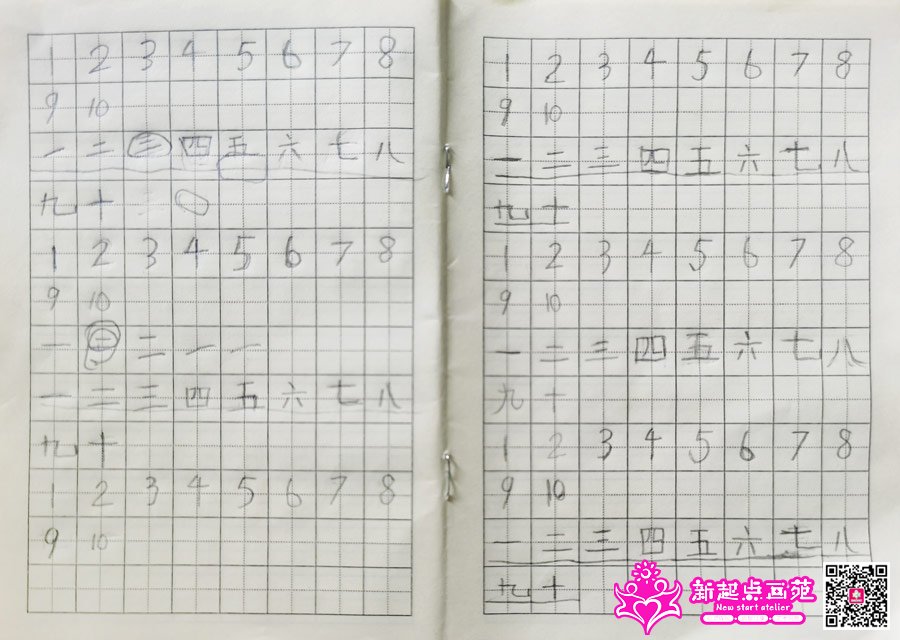 1 2 3 4 5 6 7 8
9 10
一 二 三 四 五 六 七 八
九 十
1 2 3 4 5 6 7 8
9 10
一 二 二 一 一
一 二 三 四 五 六 七 八
九 十
1 2 3 4 5 6 7 8
9 10
1 2 3 4 5 6 7 8
9 10
一 二 三 四 五 六 七 八
九 十
1 2 3 4 5 6 7 8
9 10
一 二 三 四 五 六 七 八
九 十
1 2 3 4 5 6 7 8
9 10
一 二 三 四 五 六 七 八
九 十
新起点画苑
New start atelier